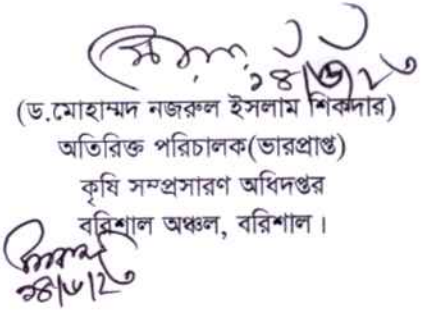 ১৪/৬/২৩
(ড.মোহাম্মদ নজরুল ইসলাম শিকদার)
অতিরিক্ত পরিচালক(ভারপ্রাপ্ত)
কৃষি সম্প্রসারণ অধিদপ্তর
বরিশাল অঞ্চল, বরিশাল।
১৪/৬/২৩